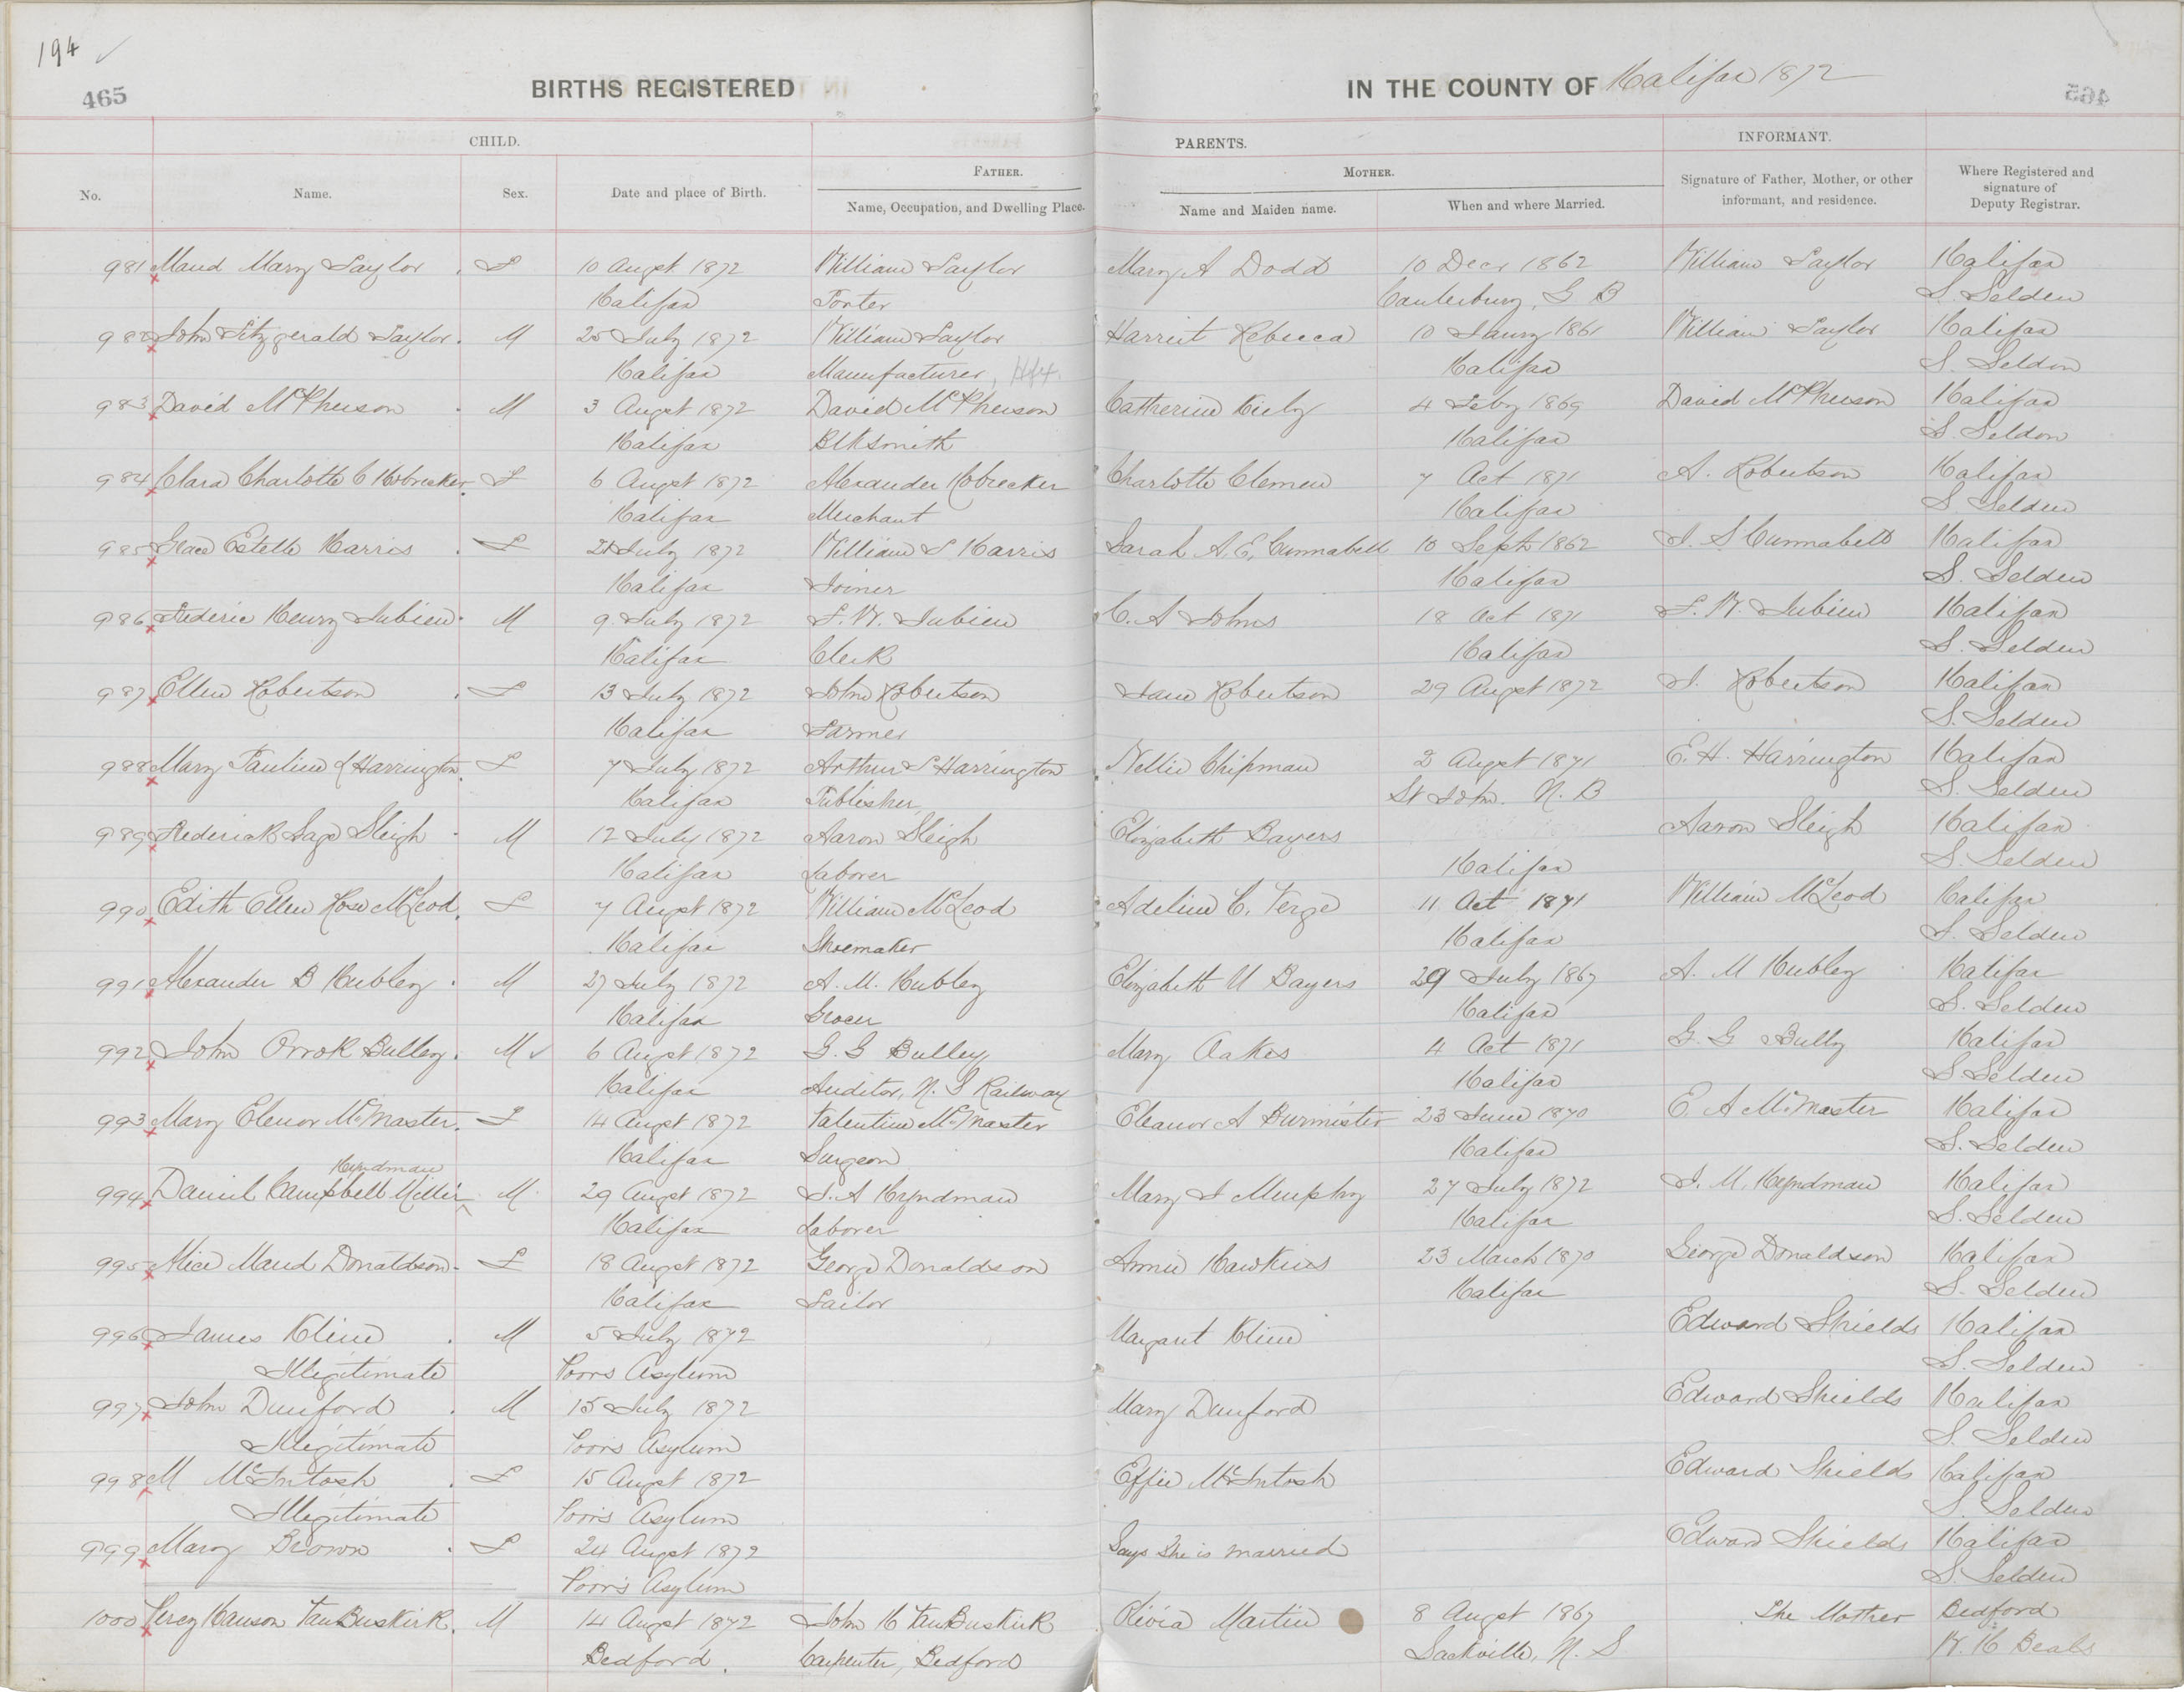 194 ✓
465
BIRTHS REGISTERED
IN THE COUNTY OF Halifax 1872
465
CHILD.
PARENTS.
INFORMANT.
No.
Name.
Sex.
Date and place of Birth.
FATHER.
Name, Occupation, and Dwelling Place.
MOTHER.
Name and Maiden name.
When and where Married.
Signature of Father, Mother, or other
informant, and residence.
Where Registered and
signature of
Deputy Registrar.
981 Maud Mary Taylor . F 10 Augst 1872 William Taylor Mary A Dodd 10 Decr 1862 William Taylor Halifax
Halifax Porter Canterbury, G B S. Selden
982 John Fitzgerald Taylor . M 25 July 1872 William Taylor Harriet Rebecca 10 Jany 1861 William Taylor Halifax
Halifax Manufacturer, Hfx. Halifax S. Seldon
983 David McPherson . M 3 Augst 1872 David McPherson Catherine Kiely 4 Feby 1869 David McPherson Halifax
Halifax Blksmith Halifax S. Seldon
984 Clara Charlotte C Hobrecker . F 6 Augst 1872 Alexander Hobrecker Charlotte Clemen 7 Oct 1871 A. Robertson Halifax
Halifax Merchant Halifax S Selden
985 Grace Estelle Harris . F July 1872 William S Harris Sarah A. E. Cunnabell 10 Sept 1862 J. S Cunnabell Halifax
Halifax Joiner Halifax S. Selden
986 Frederic Henry Jubien . M 9 July 1872 F. W. Jubien C. A Johns 18 Oct 1871 F. W. Jubien Halifax
Halifax Clerk Halifax S. Selden
987 Ellen Robertson . F 13 July 1872 John Robertson Jane Robertson 29 Augst 1872 J. Robertson Halifax
Halifax Farmer S. Selden
988 Mary Pauline C Harrington . F 7 July 1872 Arthur S Harrington Nellie Chipman 2 Augst 1871 E. H. Harrington Halifax
Halifax Publisher St John. N. B S. Selden
989 Frederick Sage Sleigh . M 12 July 1872 Aaron Sleigh Elizabeth Bayers Aaron Sleigh Halifax
Halifax Laborer Halifax S. Selden
990 Edith Ellen Rose McLeod . F 7 Augst 1872 William McLeod Adeline C. Verge 11 Oct 1871 William McLeod Halifax
Halifax Shoemaker Halifax S. Selden
991 Alexander B Hubley . M 27 July 1872 A. M. Hubley Elizabeth U Bayers 29 July 1867 A. M Hubley Halifax
Halifax Grocer Halifax S. Selden
992 John Orrok Bulley . M ✓ 6 Augst 1872 G. G Bulley Mary Oakes 4 Oct 1871 G. G Bully Halifax
Halifax Auditor, N. S Railway Halifax S Selden
993 Mary Elenor McMaster . F 14 Augst 1872 Valentine McMaster Eleanor A Burmister 23 June 1870 E. A McMaster Halifax
Halifax Surgeon Halifax S. Selden
Hyndman
994 Daniel Campbell Miller ^ M. 29 Augst 1872 J. A Hyndman Mary J Murphy 27 July 1872 J. M. Hyndman Halifax
Halifax Laborer Halifax S. Selden
995 Alice Maud Donaldson . F 18 Augst 1872 George Donaldson Annie Hawkins 23 March 1870 George Donaldson Halifax
Halifax Sailor Halifax S. Selden
996 James Kline . M 5 July 1872 Margaret Kline Edward Shields Halifax
Illegitimate Poors Asylum S. Selden
997 John Danford . M 15 July 1872 Mary Danford Edward Shields Halifax
Illegitimate Poors Asylum S. Selden
998 M McIntosh . F 15 Augst 1872 Effie McIntosh Edward Shields Halifax
Illegitimate Poors Asylum S. Selden
999 Mary Brown . F 24 Augst 1872 Says She is married Edward Shields Halifax
Poors Asylum S. Selden
1000 Percy Hanson VanBuskirk . M 14 Augst 1872 John H VanBuskirk Olivia Martin 8 Augst 1867 The Mother Bedford
Bedford. Carpenter, Bedford Sackville, N. S W. H Beals